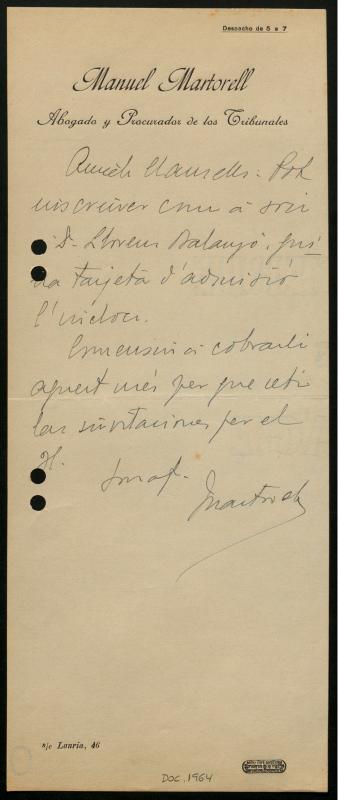 Despacho de 5 a 7
Manuel Martorell
Abogado y Procurador de los Tribunales
Amich Clausells: Pot
inscriurer com a soci
D. Llorens Balanyó,
tarjeta d'admisió
l'incloc.
Comensin a cobrarli
aquest més per que
las invitacions per el
Martorell
s/c Lauria, 46
DOC. 1964